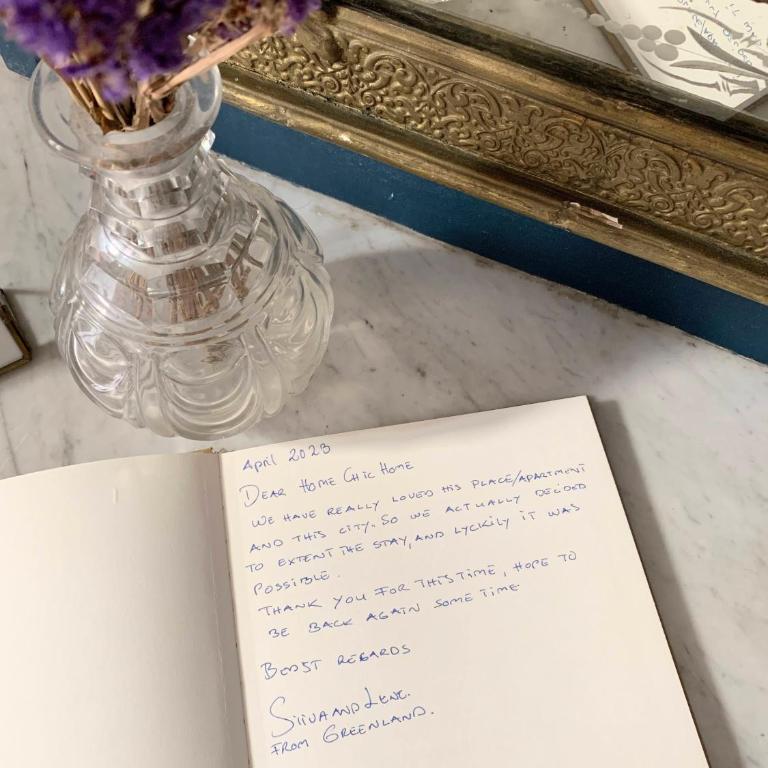 April 2023
DEAR HOME CHIC HOME
WE HAVE REALLY LOVED HIS PLACE/APARTMENT
AND THIS CITY. SO WE ACTUALLY DECIDED
TO EXTENT THE STAY, AND LYCKILY IT WAS
POSSIBLE.
THANK YOU FOR THIS TIME, HOPE TO
BE BACK AGAIN SOME TIME
BEDST REGARDS
AND LENE.
FROM GREENLAND.